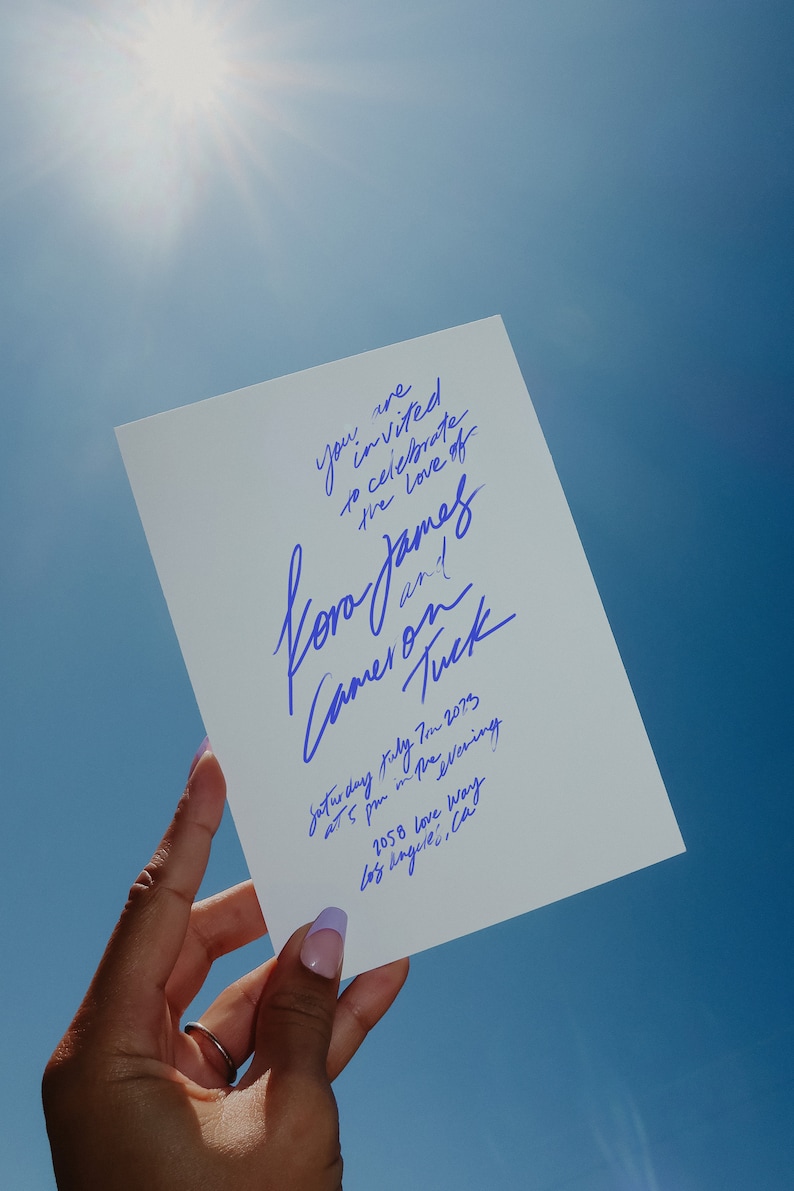 you are
invited
to celebrate
the love of
Kora James
and
Cameron
Tuck
Saturday July 7th 2023
at 5 pm in the evening
2058 Love Way
Los Angeles, CA